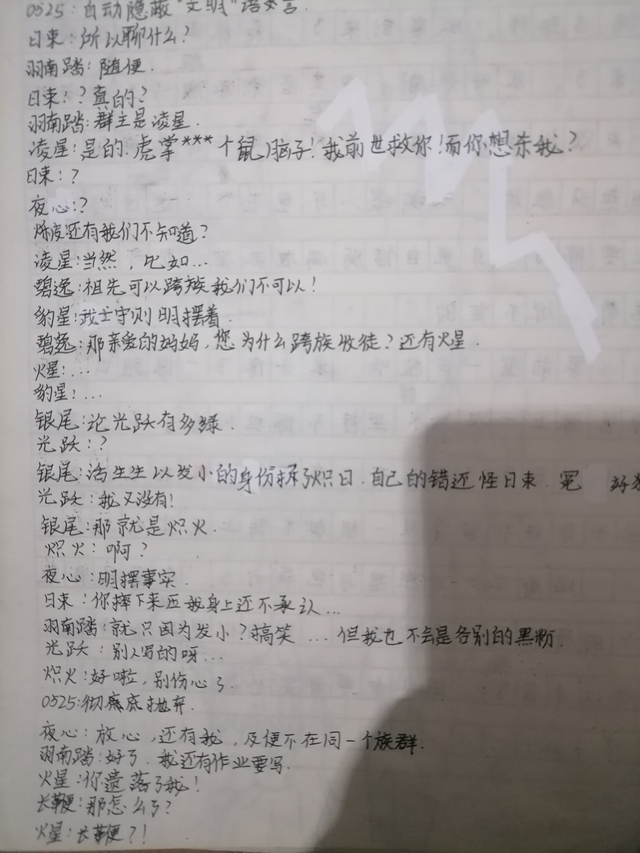 0525：自动隐蔽"文明"语发言.
日束：所以聊什么？
羽南踏：随便.
日束：？真的？
羽南踏：群主是凌星.
凌星：是的.虎掌***个鼠脑子！我前世救你！而你想杀我？
日束：？
夜心：？
还有我们不知道？
凌星：当然，比如...
碧逸：祖先可以跨族我们不可以！
豹星：武士守则明摆着.
碧逸：那亲爱的妈妈，您为什么跨族收徒？还有火星.
火星：...
豹星：...
银尾：论光跃有多绿.
光跃：？
银尾：活生生以发小的身份拆了炽日.自己的错还怪日束.冤
光跃：我又没有！
银尾：那就是炽火.
炽火：啊？
夜心：明摆事实.
日束：你摔下来压我身上还不承认...
羽南踏：就只因为发小？搞笑...但我也不会是各别的黑粉.
光跃：别人写的呀...
炽火：好啦，别伤心了.
0525：彻底底抛弃.
夜心：放心，还有我，及便不在同一个族群.
羽南踏：好了.我还有作业要写.
火星：你遗落了我！
长鞭：那怎么了？
火星：长鞭？！